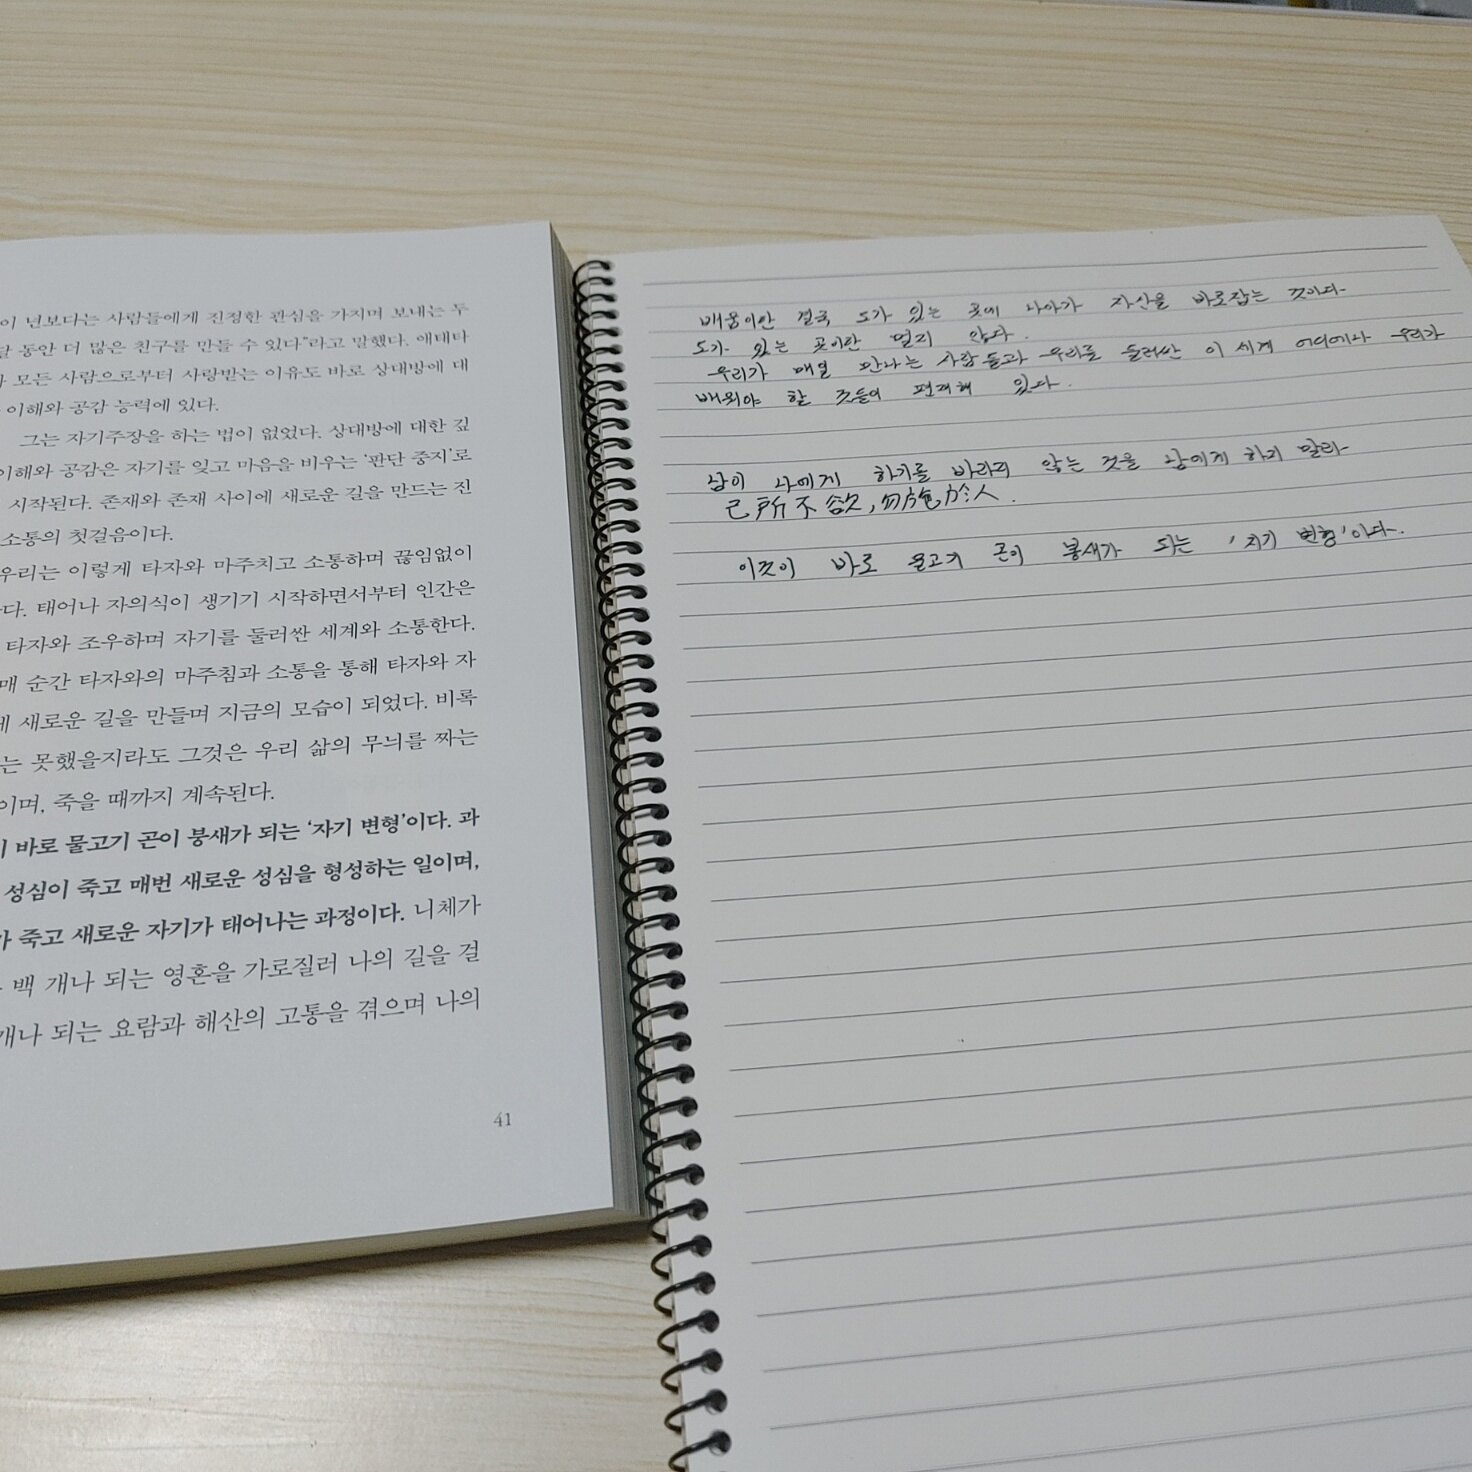 이 년보다는 사람들에게 진정한 관심을 가지며 보내는 두
달 동안 더 많은 친구를 만들 수 있다”라고 말했다. 애태타
모든 사람으로부터 사랑받는 이유도 바로 상대방에 대
이해와 공감 능력에 있다.
그는 자기주장을 하는 법이 없었다. 상대방에 대한 깊
이해와 공감은 자기를 잊고 마음을 비우는 ‘판단 중지’로
시작된다. 존재와 존재 사이에 새로운 길을 만드는 진
소통의 첫걸음이다.
우리는 이렇게 타자와 마주치고 소통하며 끊임없이
다. 태어나 자의식이 생기기 시작하면서부터 인간은
타자와 조우하며 자기를 둘러싼 세계와 소통한다.
매 순간 타자와의 마주침과 소통을 통해 타자와 자
새로운 길을 만들며 지금의 모습이 되었다. 비록
는 못했을지라도 그것은 우리 삶의 무늬를 짜는
이며, 죽을 때까지 계속된다.
바로 물고기 곤이 붕새가 되는 ‘자기 변형’이다. 과
성심이 죽고 매번 새로운 성심을 형성하는 일이며,
가 죽고 새로운 자기가 태어나는 과정이다. 니체가
백 개나 되는 영혼을 가로질러 나의 길을 걸
개나 되는 요람과 해산의 고통을 겪으며 나의
41
배움이란 결국 도가 있는 곳에 나아가 자신을 바로잡는 것이다.
도가 있는 곳이란 멀지 않다.
우리가 매일 만나는 사람들과 우리를 둘러싼 이 세계 어디에나 우리가
배워야 할 것들이 편재해 있다.
남이 나에게 하기를 바라지 않는 것을 남에게 하지 말라
己所不欲, 勿施於人.
이것이 바로 물고기 곤이 붕새가 되는 '자기 변형'이다.